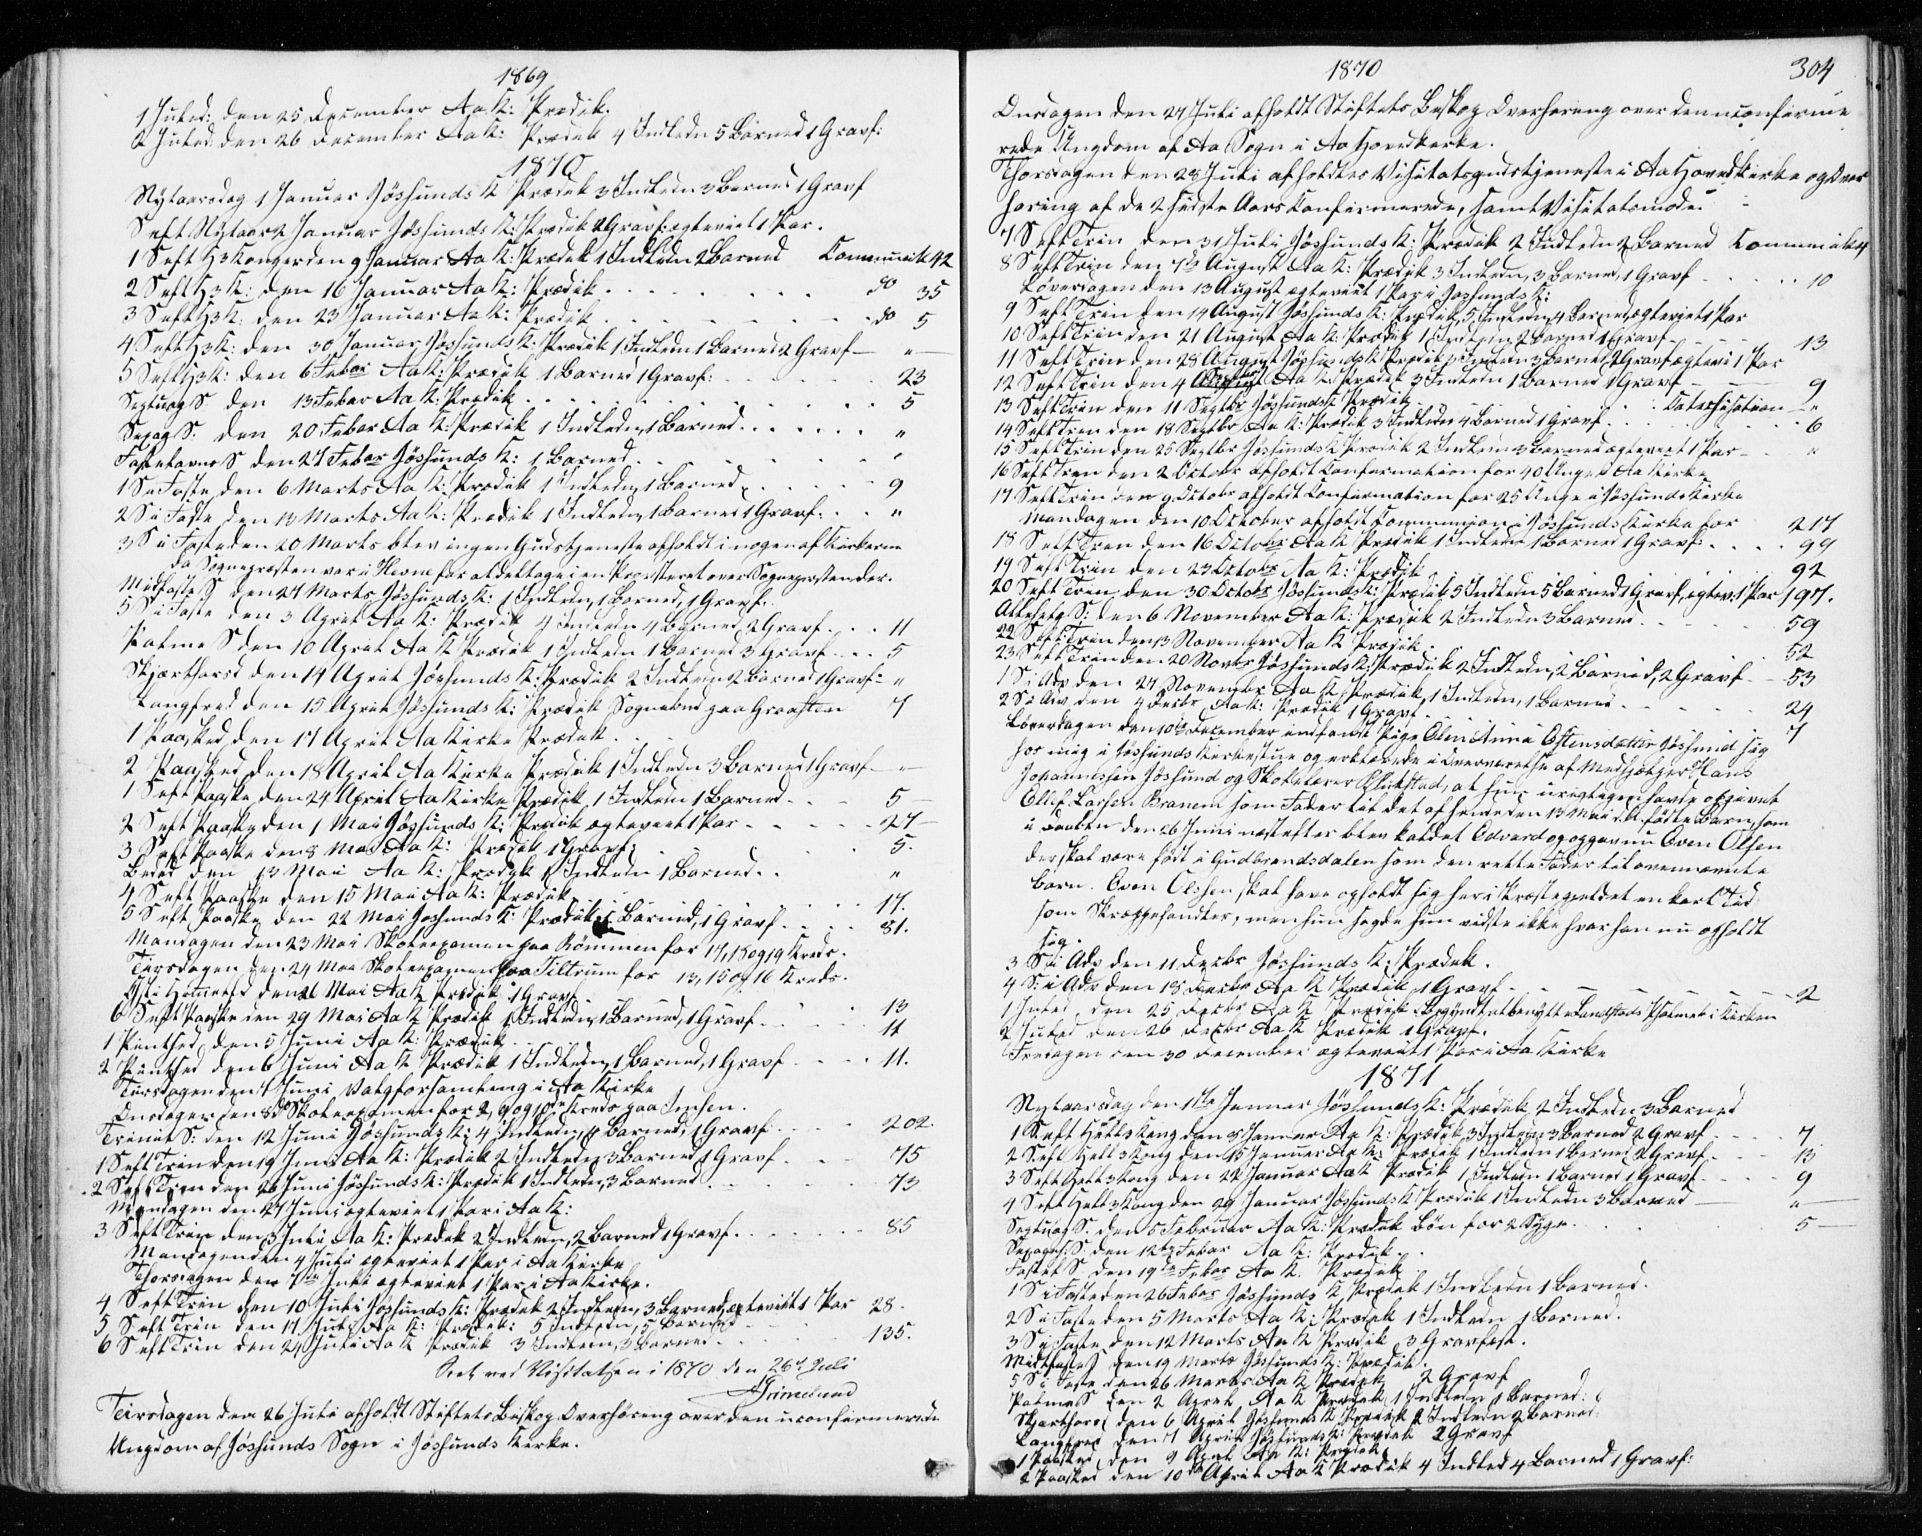 1869
1 Juled: den 25 December Aa K: Prædik.
2 Juled: den 26 December Aa K: Prædik 4 Indledn 5 Barned 1 Gravf:
1870
Nytaarsdag 1 Januar Jøssunds K Prædik 3 Indledn 3 Barned 1 Gravf
S eft Nytaar 2 Januar Jøssunds K: Prædik 2 Gravf: ægteviet 1 Par.
1 S eft H3 Konger den 9 Januar Aa K: Prædik 1 Indledn 2 Barned Communik 42
2 S eft H3 K: den 16 Januar Aa K: Prædik do 35
3 S eft H3 K: den 23 Januar Aa K: Prædik do 5
4 S eft H3 K: den 30 Januar Jøssunds K: Prædik 1 Indledn 1 Barned 2 Gravf — " —
5 S eft H3 K: den 6 Febar Aa K: Prædik 1 Barned 1 Gravf: 23
Septuag S den 13 Febar Aa K: Prædik 5
Sexag S: den 20 Febar Aa K: Prædik 1 Indledn, 1 Barned "
Fastelavns S den 27 Febar Jøssunds K: 1 Barned "
1 S i Faste den 6 Marts Aa K: Prædik 1 Indledn, 1 Barned 9
2 S i Faste den 13 Marts Aa K: Prædik 1 Indledn, 1 Barned 1 Gravf: "
3 S i Faste den 20 Marts blev ingen Gudstjeneste afholdt i nogen af Kirkerne
da Sognepræsten var i Hevne for at deltage i en Provsteret over Sognepræsten der.
Midfaste S den 27 Marts Jøssunds K: 1 Indledn, 1 Barned, 1 Gravf:
5 S i Faste den 3 April Aa K: Prædik 4 Indledn 4 Barned, 2 Gravf 11
Palme S den 10 April Aa K Prædik 1 Indledn 1 Barned 3 Gravf 5
Skjærthorsd den 14 April Jøssunds K: Prædik 2 Indledn 2 Barned 1 Gravf: "
Langfred den 15 April Jøssunds K: Prædik Sognebud paa Graasten 7
1 Paasked den 17 April Aa Kirke Prædik.
2 Paasked den 18 April Aa Kirke Prædik 1 Indledn 3 Barned 1 Gravf — " —
1 S eft Paaske den 24 April Aa Kirke Prædik, 1 Indledn 1 Barned 5 —
2 S eft Paaske den 1 Mai Jøssunds K: Prædik ægteviet 1 Par 27 —
3 S eft Paaske den 8 Mai Aa K: Prædik 1 Gravf: 5.
Beded den 13 Mai Aa K: Prædik 1 Indledn 1 Barned "
4 S eft Paaske den 15 Mai Aa K: Prædik 17.
5 S eft Paaske den 22 Mai Jøssunds K: Prædik, Barned, 1 Gravf 81.
Mandagen den 23 Mai Skoleexamen paa Rømmen for 17, 18 og 19 Kreds.
Tirsdagen den 24 Mai Skoleexamen paa Tiltrum for 13, 15 og 16 Kreds.
Chr Himmelfd den 26 Mai Aa K Prædik 1 Gravf
6 S eft Paaske den 29 Mai Aa K Prædik 1 Indledn, 1 Barned, 1 Gravf 13
1 Pintsed den 5 Juni Aa K: Prædik 11
2 Pintsed den 6 Juni Aa K Prædik 1 Indledn, 1 Barned, 1 Gravf 11.
Tirsdagen den 7 Juni Valgforsamling i Aa Kirke
Onsdagen den 8de Skoleexamen for 2, 9 og 10de Kreds paa Imsen.
Trinit S: den 12 Juni Jøssunds K: 4 Indledn, 4 Barned, 1 Gravf 202.
1 S eft Trin den 19 Juni Aa K: Prædik 2 Indledn 3 Barned 1 Gravf 75
2 S eft Trin den 26 Juni Jøssunds K: Prædik 1 Indledn, 3 Barned 73
Mandagen den 27 Juni ægteviet 1 Par i Aa K:
3 S eft Trin den 3 Juli Aa K: Prædik 2 Indledn, 2 Barned 1 Gravf 85
Mandagen den 4 Juli ægteviet 1 Par i Aa Kirke
Thorsdagen den 7de Juli ægteviet 1 Par i Aa Kirke.
4 S eft Trin den 10 Juli Jøssunds K: Prædik 2 Indledn, 3 Barned, ægteviet 1 Par 28.
5 S eft Trin den 17 Juli Aa K: Prædik: 5 Indledn, 5 Barned
6 S eft Trin den 24 Juli Aa K Prædik 3 Indledn, 3 Barned 135.
Seet ved Visitatsen i 1870 den 26de Juli
AGrimelund
Tirsdagen den 26 Juli afholdt Stiftets Biskop Overhøring over den uconfirmerede
Ungdom af Jøssunds Sogn i Jøssunds Kirke.
1870 304
Onsdagen den 27 Juli afholdt Stiftets Biskop Overhøring over den uconfirme
rede Ungdom af Aa Sogn i Aa Hovedkirke.
Thorsdagen den 28 Juli afholdtes Visitatsgudstjeneste i Aa Hovedkirke og Over
høring af de 2 sidste Aars Konfirmerede, samt Visitatsmøde.
7 S eft Trin den 31 Juli Jøssunds K: Prædik 2 Indledn 2 Barned Communik 4
8 S eft Trin den 7de August Aa K: Prædik 3 Indledn, 3 Barned, 1 Gravf 10
Løverdagen den 13 August ægteviet 1 Par i Jøssunds K:
9 S eft Trin den 14 August Jøssunds K: Prædik 5 Indledn, 4 Barned, ægteviet 1 Par
10 S eft Trin den 21 August Aa K: Prædik 1 Indledn 2 Barned 1 Gravf 13
11 S eft Trin den 28 August Jøssunds K Prædik 3 Indledn 3 Barned, 2 Gravf ægtev: 1 Par
12 S eft Trin den 4 Aa K: Prædik 3 Indledn 1 Barned 1 Gravf 9
13 S eft Trin den 11 Septbr Jøssunds K Prædik Catechisation — "
14 S eft Trin den 18 Septbr Aa K: Prædik 3 Indledn 4 Barned 1 Gravf 6
15 S eft Trin den 25 Septbr Jøssunds K Prædik 2 Indledn 3 Barned ægteviet 1 Par "
16 S eft Trin den 2 October afholdt Confirmation for 40 Unge i Aa Kirke
17 S eft Trin den 9 Octobr afholdt Confirmation for 25 Unge i Jøssunds Kirke
Mandagen den 10 October afholdt Communion i Jøssunds Kirke for 217
18 S eft Trin den 16 Octobr Aa K Prædik 1 Indledn 1 Barned 1 Gravf: 99
19 S eft Trin den 23 Octobr Aa K: Prædik 92
20 S eft Trin den 30 Octobr Jøssunds K: Prædik 5 Indledn 5 Barned 1 Gravf, ægtev: 1 Par 197.
Allehelg S: den 6 November Aa K: Prædik 2 Indledn 3 Barned 59
22 S eft Trin den 13 November Aa K Prædik 52
23 S eft Trin den 20 Novbr Jøssunds K: Prædik 2 Indledn, 2 Barned, 2 Gravf 53
1 S i Adv den 27 Novembr Aa K: Prædik, 1 Indledn, 1 Barned 24
2 S i Adv den 4 Decbr Aa K: Prædik 1 Gravf 7
Løverdagen den 10de December indfandt Pige Oline Anna Estensdatter Jøssund sig
hos mig i Jøssunds Kirkestue og erklærede i Overværelse af Medhjælper Hans
Johannessen Jøssund og Skolelærer Glükstad, at hun urigtigen havde opgivet
Ellef Larsen Branem som Fader til det af hende den 13 Mai d. A. fødte Barn, som
i Daaben den 26 Juni næstefter blev kaldet Edvard og opgav nu Even Olsen
der skal være født i Gudbrandsdalen som den rette Fader til ovennævnte
Barn. Even Olsen skal have opholdt sig her i Præstegjeldet en kort Tid
som Skræppehandler, men hun sagde hun vidste ikke hvor han nu opholdt
sig.
3 S i Adv den 11 Decbr Jøssunds K: Prædik.
4 S: i Adv den 18 Decbr Aa K Prædik, 1 Gravf 2
1 Juled den 25 Decbr Aa K Prædik. Begyndt at benytte Landstads Psalmeb: i Kirken
2 Juled den 26 Decbr Aa K Prædik 1 Gravf.
Fredagen den 30 December ægteviet 1 Par i Aa Kirke
1871
Nytaarsdag den 1ste Januar Jøssunds K: Prædik, 2 Indledn 3 Barned
1 S eft Hell 3 Kong den 8 Januar Aa K: Prædik, 3 Indledn 3 Barned 2 Gravf 7
2 S eft Hell 3 Kong den 15 Januar Aa K: Prædik 1 Indledn 1 Barned 2 Gravf 13
3 S eft Hell 3 Kong den 22 Januar Aa K Prædik 1 Indledn 1 Barned 1 Gravf 9
4 S eft Hell 3 Kong den 29 Januar Jøssunds K Prædik 1 Indledn 3 Barned "
Septuag S: den 5 Februar Aa K: Prædik Bøn for 2 Syge 5 —
Sexages: S: den 12te Febar Aa K: Prædik
Fastel S den 19de Febar Aa K. Prædik
1 S i Faste den 26 Febar Jøssunds K Prædik 1 Indledn 1 Barned.
2 S i Faste den 5 Marts Aa K: Prædik 1 Indledn 1 Barned.
3 S i Faste den 12 Marts Aa K Prædik 3 Gravfest.
Midtfaste S den 19 Marts Jøssunds K: Prædik.
5 S i Faste den 26 Marts Aa K Prædik 2 Gravf
Palme S den 2 April Aa K Prædik 1 Indledn 1 Barned:
Skjærthorsd den 6 April Jøssunds K Prædik 2 Indledn 2 Barned:
Langfred den 7 April Jøssunds K: Prædik 2 Gravf
1 Paasked den 9 April Aa K: Prædik
2 Paasked den 10de April Aa K Prædik 4 Indled 4 Barned 1 Gravf: